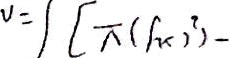 V = ∫ [ π (fx)²) -